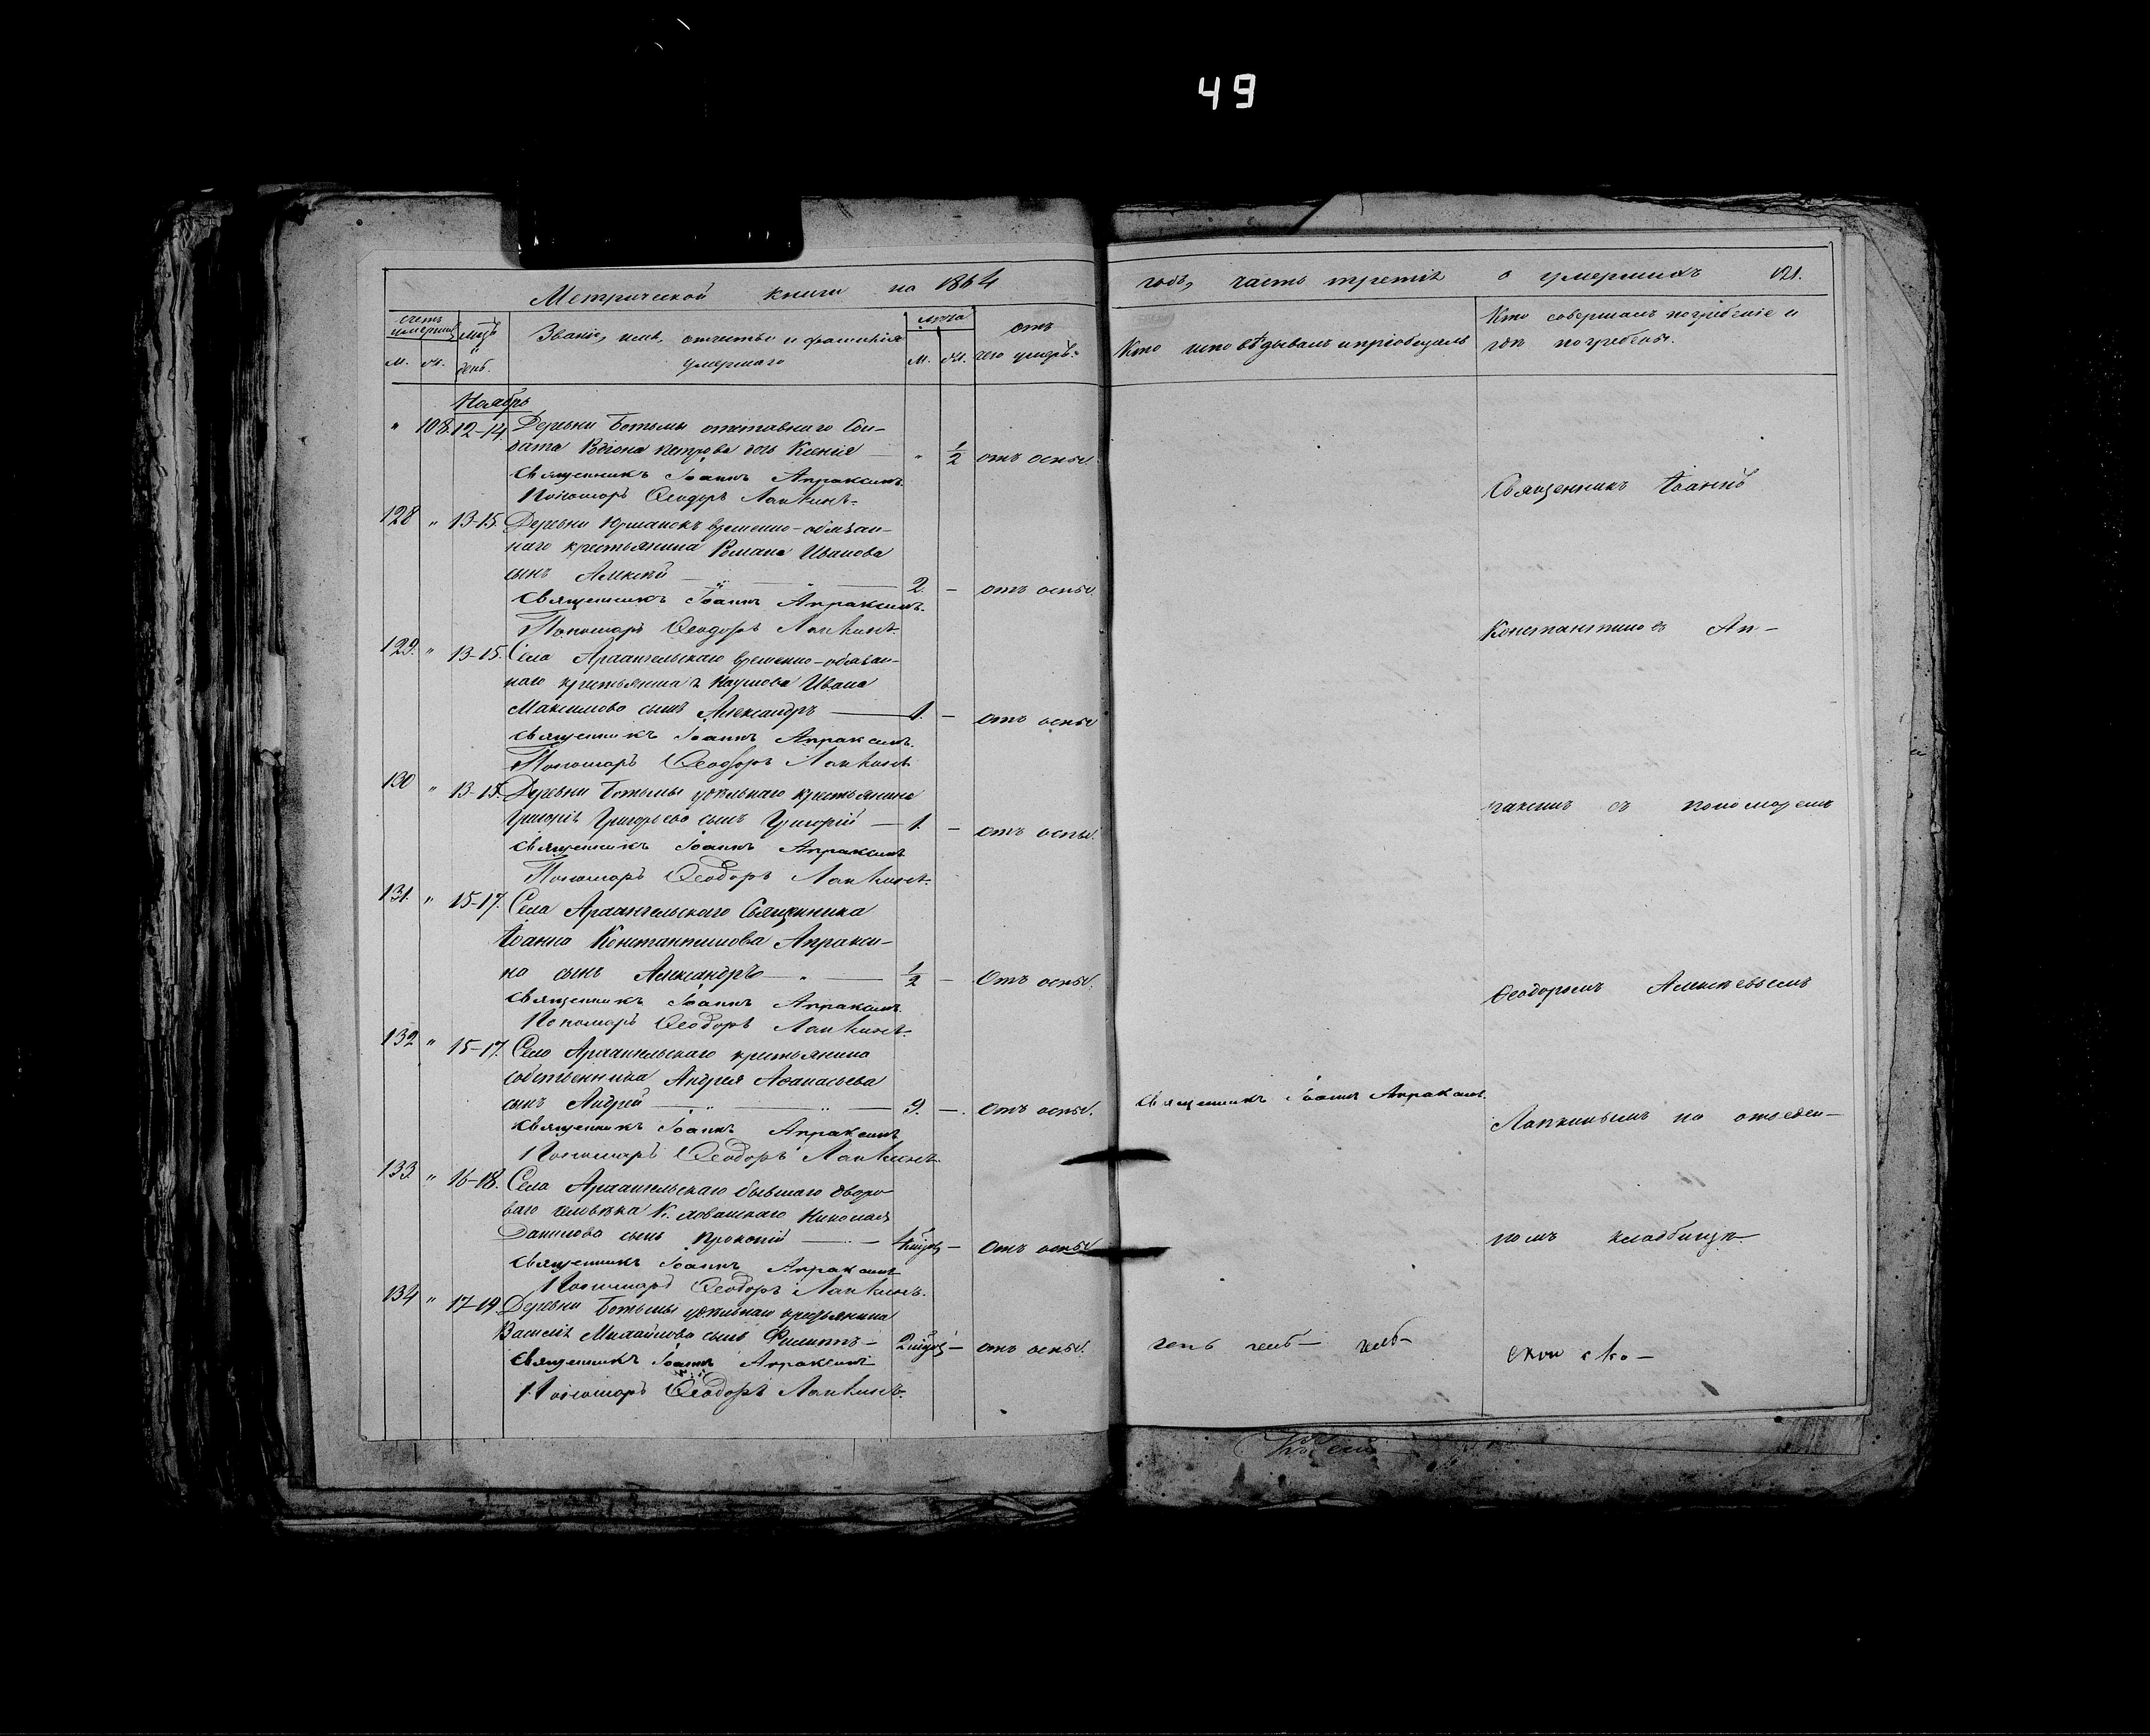 49
Метрической книги на 1864
годъ, часть третія о умершихъ 121.
счетъ умершихъ
мѣсяцъ и день.
Званіе, имя, отчество и фамилія умершаго
лѣта
отъ чего умеръ.
М. Ж.
М. Ж.
Кто исповѣдывалъ и пріобщалъ
Кто совершалъ погребеніе и
гдѣ погребены.
Ноябрь
" 108. 12-14. Деревни Ботьмы отставнаго Сол-
дата Петрова дочь Ксенія " 1/2 отъ оспы.
Священникъ Іоаннъ Апраксинъ.
Пономарь Ѳеодоръ Лапкинъ.
128 " 13-15. Деревни Юрманокъ временно-обязан-
наго крестьянина Романа Иванова
сынъ Алексѣй 2. - отъ оспы
Священникъ Іоаннъ Апраксинъ.
Пономарь Ѳеодоръ Лапкинъ.
129. " 13-15. Села Архангельскаго временно-обязан-
наго крестьянина г. Наумова Ивана
Максимова сынъ Александръ 1. - отъ оспы
Священникъ Іоаннъ Апраксинъ.
Пономарь Ѳеодоръ Лапкинъ
130 " 13-15. Деревни Ботьмы удѣльнаго крестьянина
Григорія Григорьева сынъ Григорій 1. - отъ оспы.
Священникъ Іоаннъ Апраксинъ
Пономарь Ѳеодоръ Лапкинъ.
131. " 15-17. Села Архангельскаго Священника
Іоанна Константинова Апракси-
на сынъ Александръ 1/2 - Отъ оспы.
Священникъ Іоаннъ Апраксинъ
Пономарь Ѳеодоръ Лапкинъ.
132 " 15-17. Села Архангельскаго крестьянина
собственника Андрея Аѳанасьева
сынъ Андрей 9. - Отъ оспы.
Священникъ Іоаннъ Апраксинъ
Пономарь Ѳеодоръ Лапкинъ.
133 " 16-18. Села Архангельскаго бывшаго дворо-
ваго человѣка Николая
Данилова сынъ Прокопій - Отъ оспы
Священникъ Іоаннъ Апраксинъ
Пономарь Ѳеодоръ Лапкинъ.
134 " 17-19. Деревни Ботьмы удѣльнаго крестьянина
Василія Михайлова сынъ Филиппъ - отъ оспы.
Священникъ Іоаннъ Апраксинъ
Пономарь Ѳеодоръ Лапкинъ.
Священникъ Іоаннъ Апраксинъ.
Священникъ Іоаннъ
Константиновъ Ап-
раксинъ съ пономаремъ
Ѳеодоромъ Алексѣевымъ
Лапкинымъ на отведен-
номъ кладбищѣ